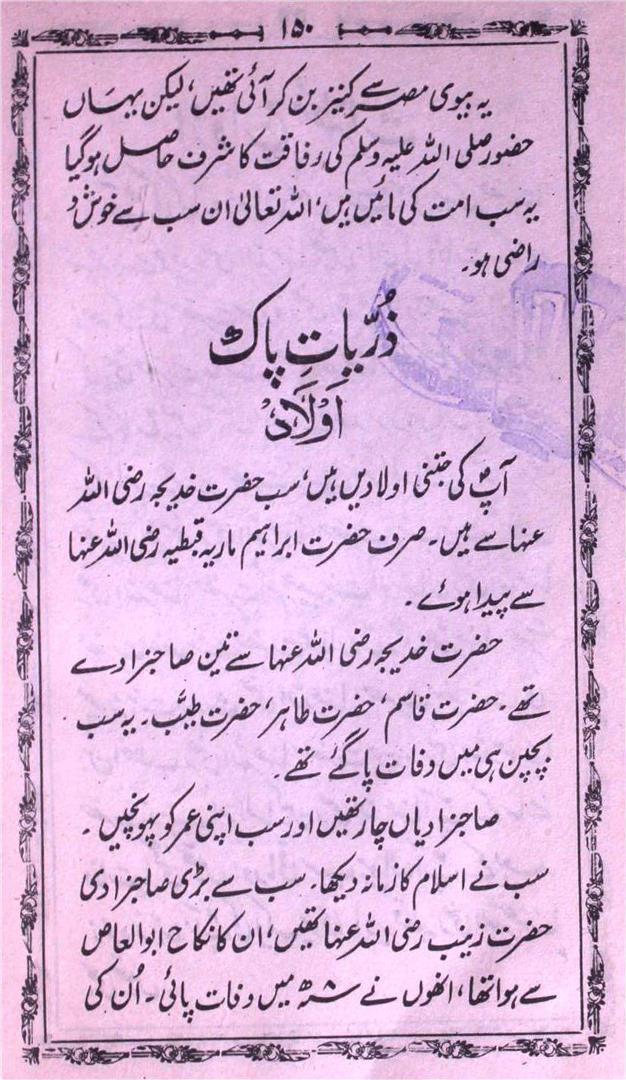 ۱۵۰
یہ بیوی مصر سے کنیز بن کر آئی تھیں، لیکن یہاں
حضور صلی اللہ علیہ وسلم کی رفاقت کا شرف حاصل ہوگیا
یہ سب امت کی مائیں ہیں، اللہ تعالیٰ ان سب سے خوش و
راضی ہو۔
ذُرّیاتِ پاک
اَوْلَادْ
آپؐ کی جتنی اولادیں ہیں، سب حضرت خدیجہ رضی اللہ
عنہا سے ہیں۔ صرف حضرت ابراہیم ماریہ قبطیہ رضی اللہ عنہا
سے پیدا ہوئے۔
حضرت خدیجہ رضی اللہ عنہا سے تین صاحبزادے
تھے۔ حضرت قاسم، حضرت طاہر، حضرت طیّب۔ یہ سب
بچپن ہی میں وفات پا گئے تھے۔
صاحبزادیاں چار تھیں اور سب اپنی عمر کو پہونچیں۔
سب نے اسلام کا زمانہ دیکھا۔ سب سے بڑی صاحبزادی
حضرت زینب رضی اللہ عنہا تھیں، ان کا نکاح ابوالعاص
سے ہوا تھا، انھوں نے ۸ھ میں وفات پائی۔ اُن کی